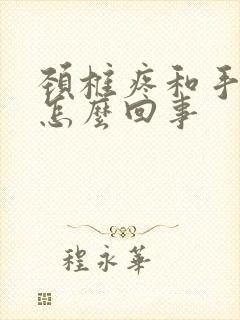 頸椎疼和手
怎麼回事
程永華